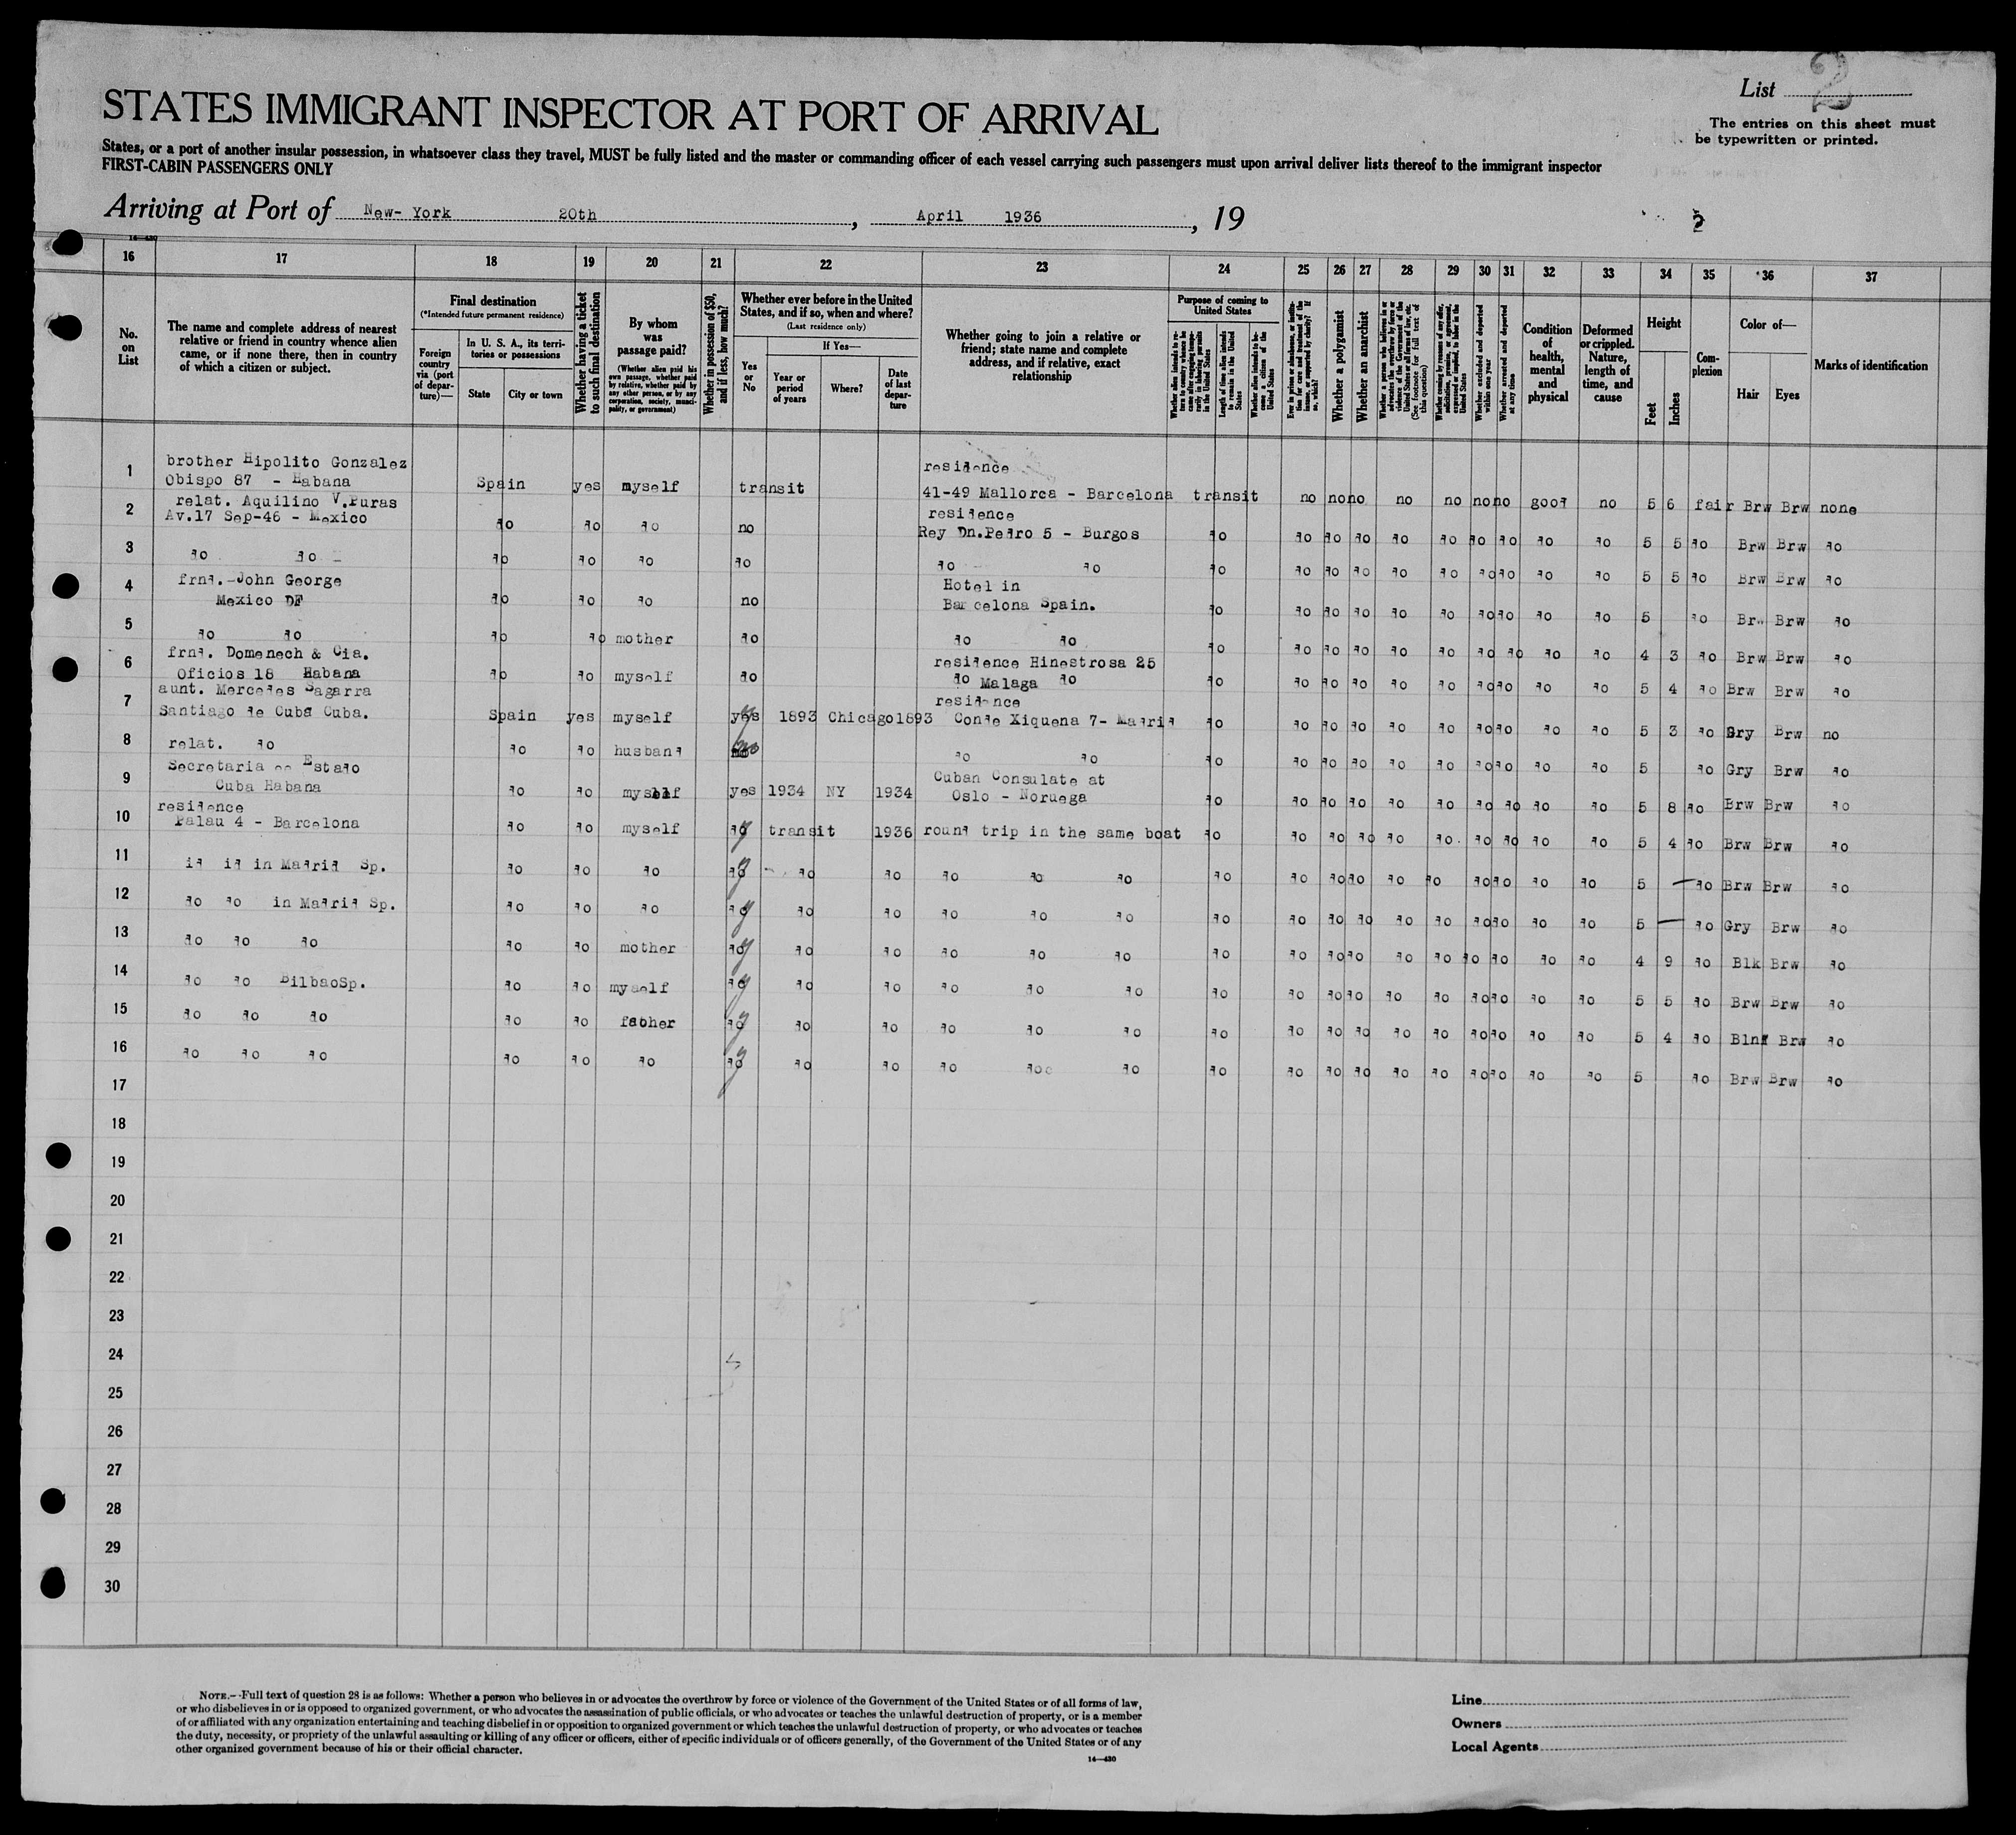 List 2
The entries on this sheet must
be typewritten or printed.
STATES IMMIGRANT INSPECTOR AT PORT OF ARRIVAL
States, or a port of another insular possession, in whatsoever class they travel, MUST be fully listed and the master or commanding officer of each vessel carrying such passengers must upon arrival deliver lists thereof to the immigrant inspector
FIRST-CABIN PASSENGERS ONLY
Arriving at Port of New-York 20th, April 1936, 19
2
16 17 18 19 20 21 22 23 24 25 26 27 28 29 30 31 32 33 34 35 36 37
No. on List
The name and complete address of nearest relative or friend in country whence alien came, or if none there, then in country of which a citizen or subject.
Final destination
(*Intended future permanent residence)
Foreign country via (port of departure)—
In U. S. A., its territories or possessions
State
City or town
Whether having a ticket to such final destination
By whom was passage paid?
(Whether alien paid his own passage, whether paid by relative, whether paid by any other person, or by any corporation, society, municipality, or government)
Whether in possession of $50, and if less, how much?
Whether ever before in the United States, and if so, when and where?
(Last residence only)
Yes or No
If Yes—
Year or period of years
Where?
Date of last departure
Whether going to join a relative or friend; state name and complete address, and if relative, exact relationship
Purpose of coming to United States
Whether alien intends to return to country whence he came after engaging temporarily in laboring pursuits in the United States
Length of time alien intends to remain in the United States
Whether alien intends to become a citizen of the United States
Whether a polygamist
Whether an anarchist
(See footnote for full text of this question)
Whether excluded and deported within one year
Whether arrested and deported at any time
Condition of health, mental and physical
Deformed or crippled. Nature, length of time, and cause
Height
Feet
Inches
Complexion
Color of—
Hair
Eyes
Marks of identification
1 brother Hipolito Gonzalez residence
Obispo 87 - Habana Spain yes myself transit 41-49 Mallorca - Barcelona transit no no no no no no no good no 5 6 fair Brw Brw none
2 relat. Aquilino V.Puras residence
Av.17 Sep-46 - Mexico do do do no Rey Dn.Pedro 5 - Burgos do do do do do do do do do do 5 5 do Brw Brw do
3 do do - do do do do do do do do do do do do do do do do 5 5 do Brw Brw do
4 frnd.-John George Hotel in
Mexico DF do do do no Barcelona Spain. do do do do do do do do do do 5 do Brw Brw do
5 do do do do mother do do do do do do do do do do do do do 4 3 do Brw Brw do
6 frnd. Domenech & Cia. residence Hinestrosa 25
Oficios 18 Habana do do myself do do Malaga do do do do do do do do do do do 5 4 do Brw Brw do
7 aunt. Mercedes Sagarra residence
Santiago de Cuba Cuba. Spain yes myself yes 1893 Chicago 1893 Conde Xiquena 7- Madrid do do do do do do do do do do 5 3 do Gry Brw no
8 relat. do do do husband do do do do do do do do do do do do do 5 do Gry Brw do
9 Secretaria de Estado Cuban Consulate at
Cuba Habana do do myself yes 1934 NY 1934 Oslo - Noruega do do do do do do do do do do 5 8 do Brw Brw do
10 residence
Palau 4 - Barcelona do do myself do transit 1936 round trip in the same boat do do do do do do do do do do 5 4 do Brw Brw do
11 id id in Madrid Sp. do do do do do do do do do do do do do do do do do do do 5 — do Brw Brw do
12 do do in Madrid Sp. do do do do do do do do do do do do do do do do do do do 5 — do Gry Brw do
13 do do do do do mother do do do do do do do do do do do do do do do do 4 9 do Blk Brw do
14 do do BilbaoSp. do do myself do do do do do do do do do do do do do do do do 5 5 do Brw Brw do
15 do do do do do father do do do do do do do do do do do do do do do do 5 4 do Blnd Brw do
16 do do do do do do do do do do do do do do do do do do do do do do 5 do Brw Brw do
17
18
19
20
21
22
23
24
25
26
27
28
29
30
NOTE.--Full text of question 28 is as follows: Whether a person who believes in or advocates the overthrow by force or violence of the Government of the United States or of all forms of law,
or who disbelieves in or is opposed to organized government, or who advocates the assassination of public officials, or who advocates or teaches the unlawful destruction of property, or is a member
of or affiliated with any organization entertaining and teaching disbelief in or opposition to organized government or which teaches the unlawful destruction of property, or who advocates or teaches
the duty, necessity, or propriety of the unlawful assaulting or killing of any officer or officers, either of specific individuals or of officers generally, of the Government of the United States or of any
other organized government because of his or their official character.
14—430
Line
Owners
Local Agents